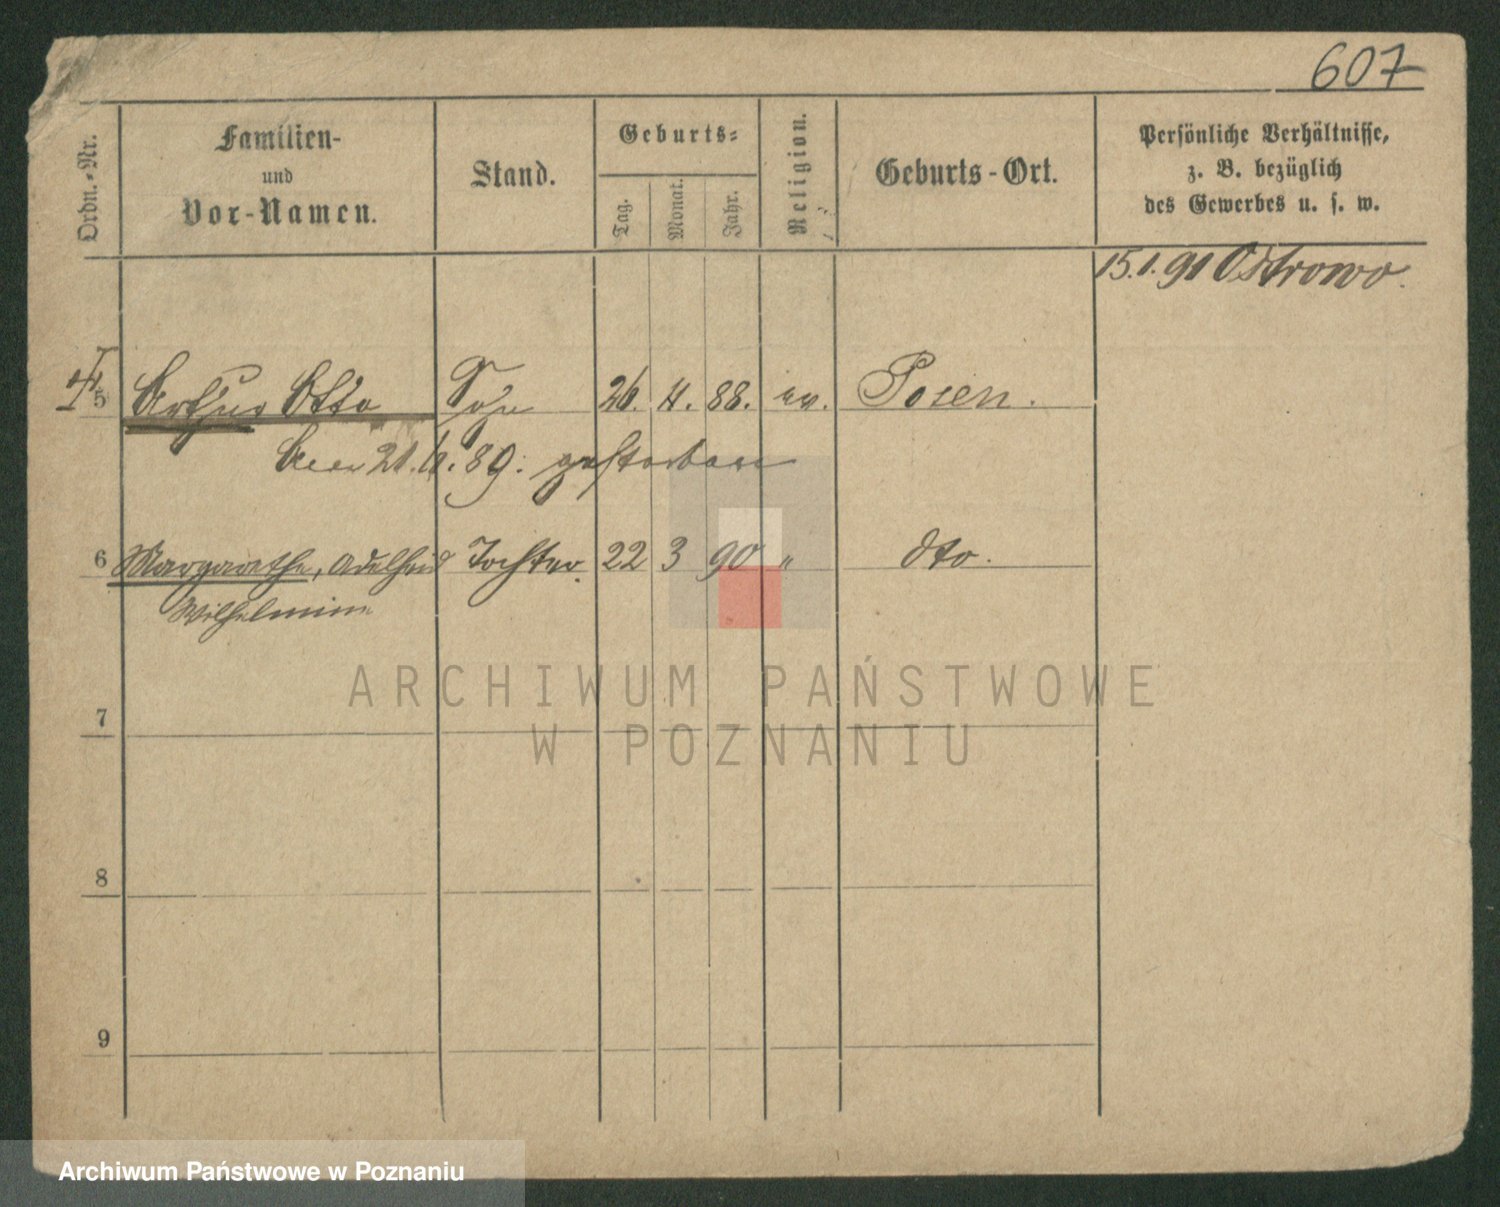 607
Ordn.-Nr.
Familien-
und
Vor-Namen.
Stand.
Geburts-
Tag.
Monat.
Jahr.
Religion.
Geburts-Ort.
Persönliche Verhältnisse,
z. B. bezüglich
des Gewerbes u. s. w.
15.1.91 Ostrowo.
5 Arthur Otto Sohn 26. 4. 88. ev. Posen.
21. 89. gestorben
6 Margarethe, Adelheid Tochter. 22 3 90 " dto.
Wilhelmine
ARCHIWUM PAŃSTWOWE
W POZNANIU
7
8
9
Archiwum Państwowe w Poznaniu